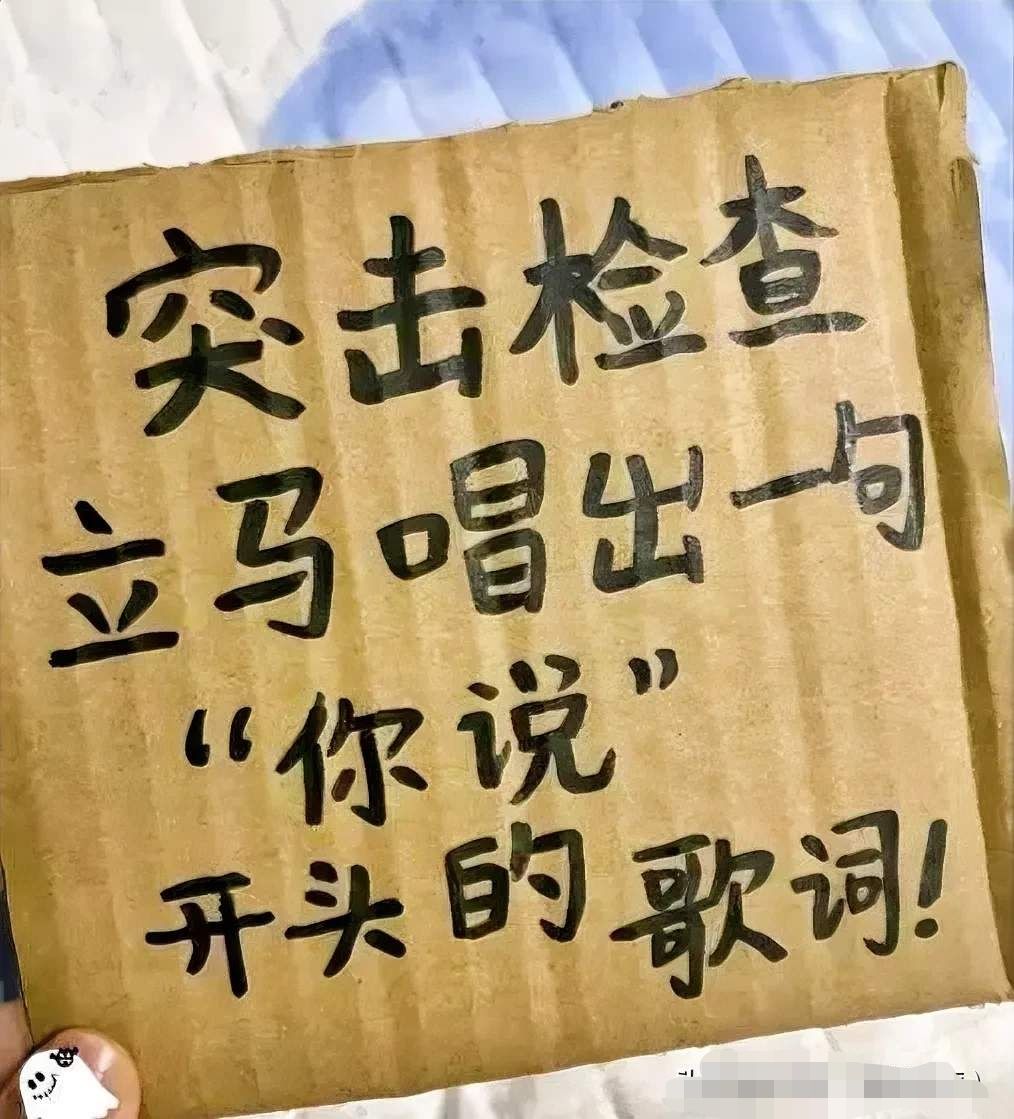 突击检查
立马唱出一句
“你说”
开头的歌词!